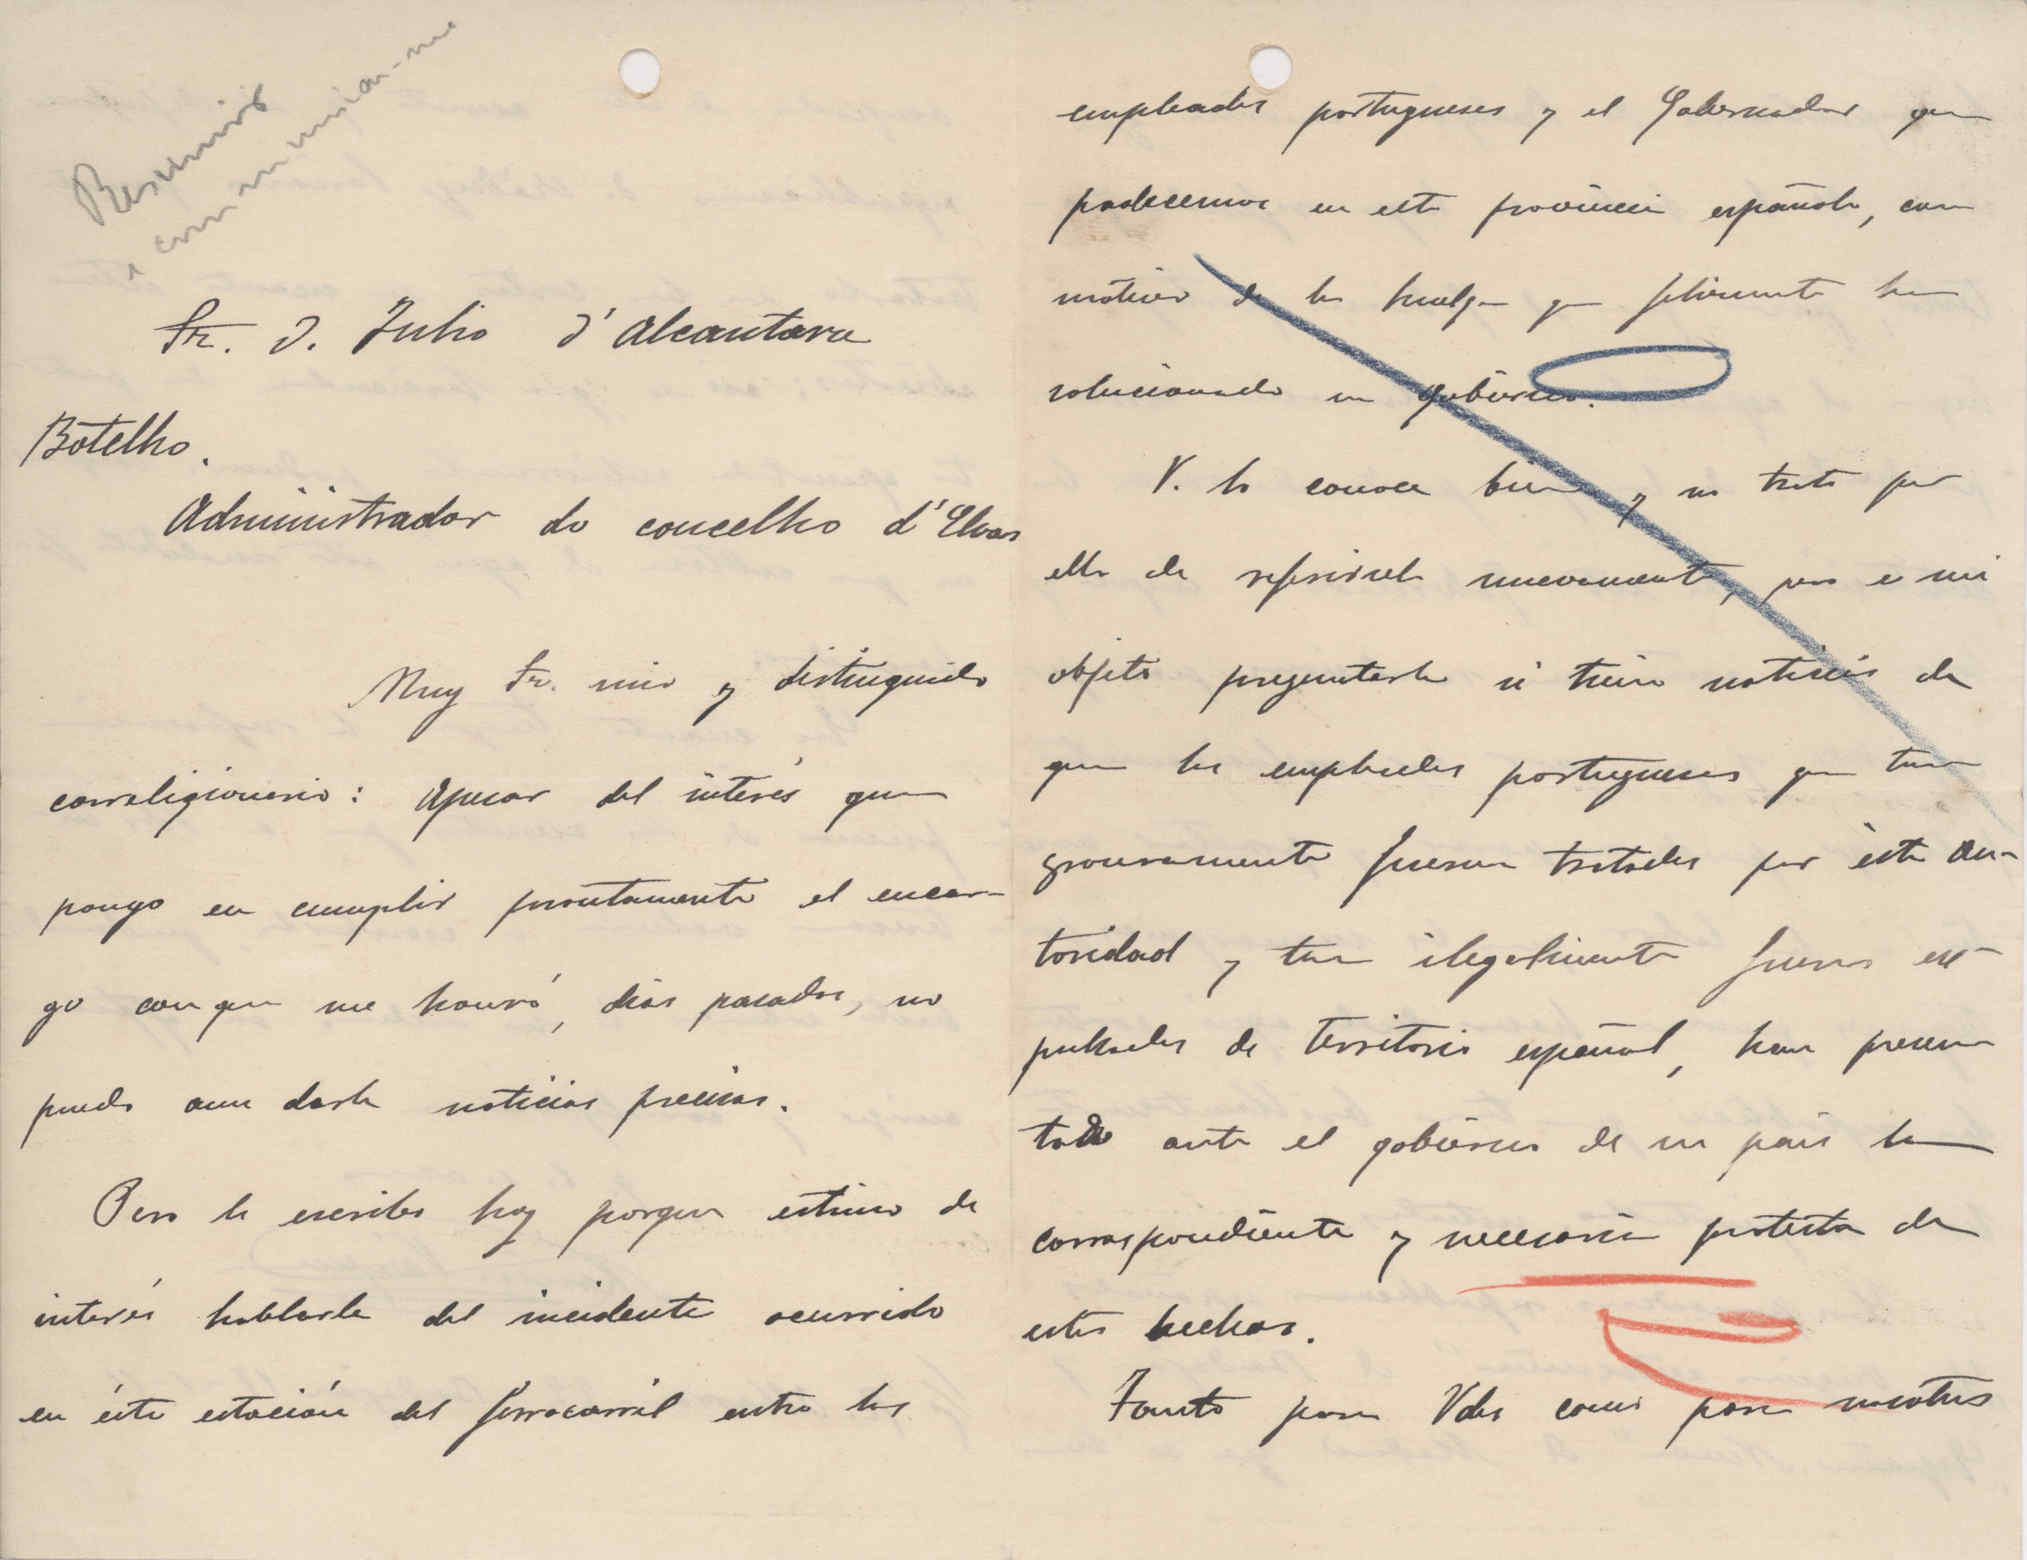 Resumir
e communicar-me
Sr. D. Julio d'Alcantara
Botelho.
Administrador do concelho d'Elvas
Muy Sr. mio y distinguido
correligionario: Apesar del interés que
pongo en cumplir prontamente el encar-
go con que me honró, dias pasados, no
puedo aun darle noticias precisas.
Pero le escribo hoy porque estimo de
interés hablarle del incidente ocurrido
en ésta estación del ferrocarril entre los
empleados portugueses y el Gobernador que
padecemos en esta provincia española, con
motivo de la huelga que felizmente ha
solucionado su gobierno.
V. lo conoce bien y no trato por
ello de referirsela nuevamente, pero es mi
objeto preguntarle si tiene noticias de
que los empleados portugueses que tan
groseramente fueron tratados por ésta au-
toridad y tan ilegalmente fueron ex-
pulsados de territorio español, han presen
tado ante el gobierno de su pais la
correspondiente y necesaria protesta de
estos hechos.
Tanto para Vdes como para nosotros